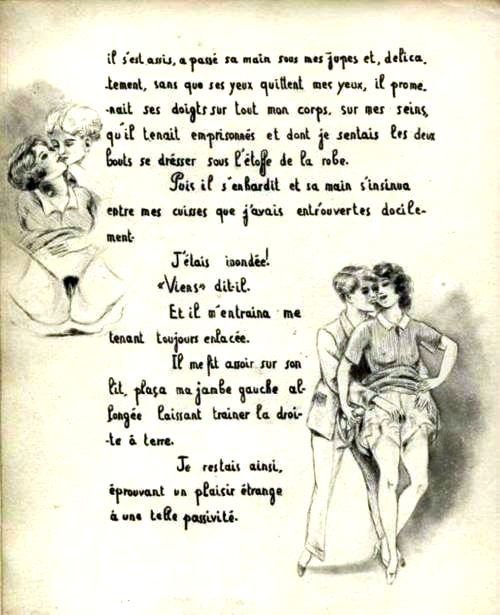 il s'est assis, a passé sa main sous mes jupes et, délica-
tement, sans que ses yeux quittent mes yeux, il prome-
-nait ses doigts sur tout mon corps, sur mes seins,
qu'il tenait emprisonnés et dont je sentais les deux
bouts se dresser sous l'étoffe de la robe.
Puis il s'enhardit et sa main s'insinua
entre mes cuisses que j'avais entr'ouvertes docile-
ment.
J'étais inondée!
«Viens» dit-il.
Et il m'entraina me
tenant toujours enlacée.
Il me fit assoir sur son
lit, plaça ma jambe gauche al-
longée laissant trainer la droi-
-te à terre.
Je restais ainsi,
éprouvant un plaisir étrange
à une telle passivité.